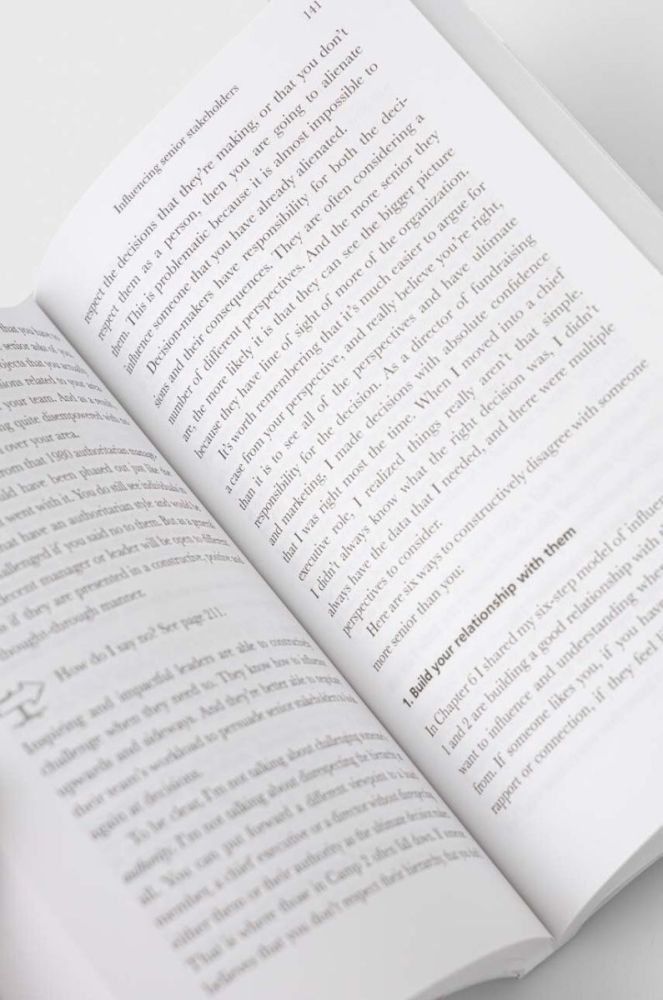 that you have
senior asks of you,
projects that you
related to your area,
your team. And as a
quite disempowered
over your area.
from that 1980 authoritarian
have been phased out just like the
went with it. You do still see individuals
that have an authoritarian style and would
challenged if you said no to them. But as a general
decent manager or leader will be open to different
if they are presented in a constructive, positive and
thought-through manner.
How do I say no? See page 211.
Inspiring and impactful leaders are able to constructively
challenge when they need to. They know how to influence
upwards and sideways. And they're better able to
their team's workload to persuade senior stakeholders
again at decisions.
To be clear, I'm not talking about challenging
I'm not talking about disrespecting the hierarchy
all. You can put forward a different viewpoint to a board
member, a chief executive or a director without disrespecting
either them or their authority as the ultimate decision maker.
That is where those in Camp 2 often fall down. If someone
believes that you don't respect their hierarchy, that you don't
Influencing senior stakeholders
141
respect the decisions that they're making, or that you don't
respect them as a person, then you are going to alienate
them. This is problematic because it is almost impossible to
influence someone that you have already alienated.
Decision-makers have responsibility for both the deci-
sions and their consequences. They are often considering a
number of different perspectives. And the more senior they
are, the more likely it is that they can see the bigger picture
because they have line of sight of more of the organization.
It's worth remembering that it's much easier to argue for
a case from your perspective, and really believe you're right,
than it is to see all of the perspectives and have ultimate
responsibility for the decision. As a director of fundraising
and marketing, I made decisions with absolute confidence
that I was right most the time. When I moved into a chief
executive role, I realized things really aren't that simple.
I didn't always know what the right decision was, I didn't
always have the data that I needed, and there were multiple
perspectives to consider.
Here are six ways to constructively disagree with someone
more senior than you:
1. Build your relationship with them
In Chapter 6 I shared my six-step model of
1 and 2 are building a good relationship with
want to influence and understanding
from. If someone likes you, if you have
rapport or connection, if they feel